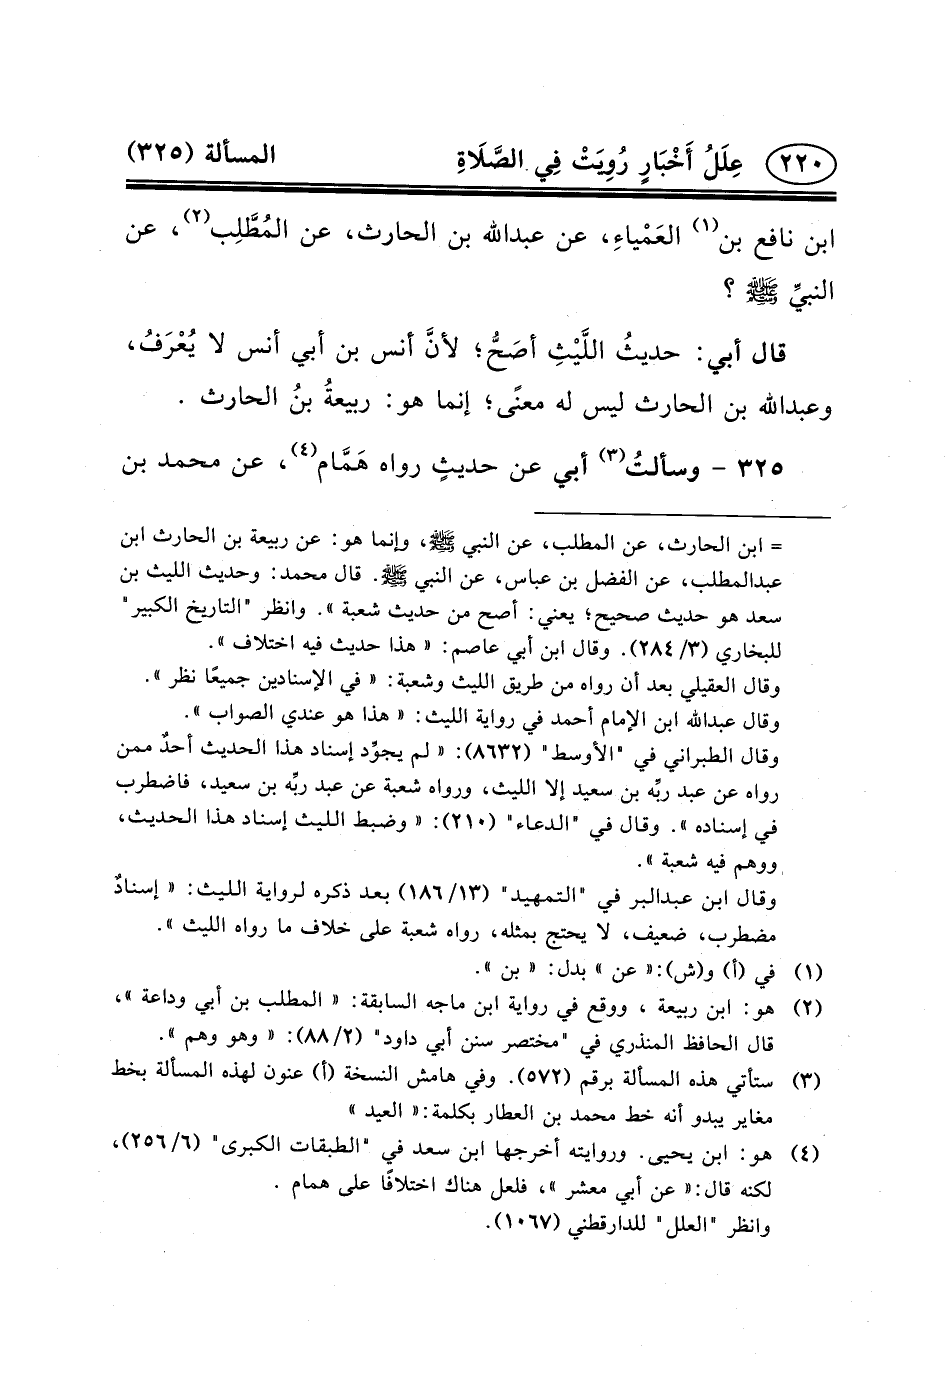 ٢٢٠ عِلَلُ أَخْبَارٍ رُوِيَتْ فِي الصَّلَاةِ المسألة (٣٢٥)
ابن نافع بن(١) العَمْياءِ، عن عبدالله بن الحارث، عن المُطَّلِب(٢)، عن
النبيِّ ﷺ ؟
قال أبي: حديثُ اللَّيْثِ أصَحُّ؛ لأنَّ أنس بن أبي أنس لا يُعْرَفُ،
وعبدالله بن الحارث ليس له معنًى؛ إنما هو: ربيعةُ بنُ الحارث .
٣٢٥ - وسألتُ(٣) أبي عن حديثٍ رواه هَمَّام(٤)، عن محمد بن
= ابن الحارث، عن المطلب، عن النبي ﷺ، وإنما هو: عن ربيعة بن الحارث ابن
عبدالمطلب، عن الفضل بن عباس، عن النبي ﷺ. قال محمد: وحديث الليث بن
سعد هو حديث صحيح؛ يعني: أصح من حديث شعبة ». وانظر "التاريخ الكبير"
للبخاري (٣/ ٢٨٤). وقال ابن أبي عاصم: « هذا حديث فيه اختلاف ».
وقال العقيلي بعد أن رواه من طريق الليث وشعبة: « في الإسنادين جميعًا نظر ».
وقال عبدالله ابن الإمام أحمد في رواية الليث: « هذا هو عندي الصواب ».
وقال الطبراني في "الأوسط" (٨٦٣٢): « لم يجوِّد إسناد هذا الحديث أحدٌ ممن
رواه عن عبد ربِّه بن سعيد إلا الليث، ورواه شعبة عن عبد ربِّه بن سعيد، فاضطرب
في إسناده ». وقال في "الدعاء" (٢١٠): « وضبط الليث إسناد هذا الحديث،
ووهم فيه شعبة ».
وقال ابن عبدالبر في "التمهيد" (١٣/ ١٨٦) بعد ذكره لرواية الليث: « إسنادٌ
مضطرب، ضعيف، لا يحتج بمثله، رواه شعبة على خلاف ما رواه الليث ».
(١) في (أ) و(ش):« عن » بدل: « بن ».
(٢) هو: ابن ربيعة ، ووقع في رواية ابن ماجه السابقة: « المطلب بن أبي وداعة »،
قال الحافظ المنذري في "مختصر سنن أبي داود" (٢/ ٨٨): « وهو وهم ».
(٣) ستأتي هذه المسألة برقم (٥٧٢). وفي هامش النسخة (أ) عنون لهذه المسألة بخط
مغاير يبدو أنه خط محمد بن العطار بكلمة:« العيد »
(٤) هو: ابن يحيى. وروايته أخرجها ابن سعد في "الطبقات الكبرى" (٦/ ٢٥٦)،
لكنه قال:« عن أبي معشر »، فلعل هناك اختلافًا على همام .
وانظر "العلل" للدارقطني (١٠٦٧).